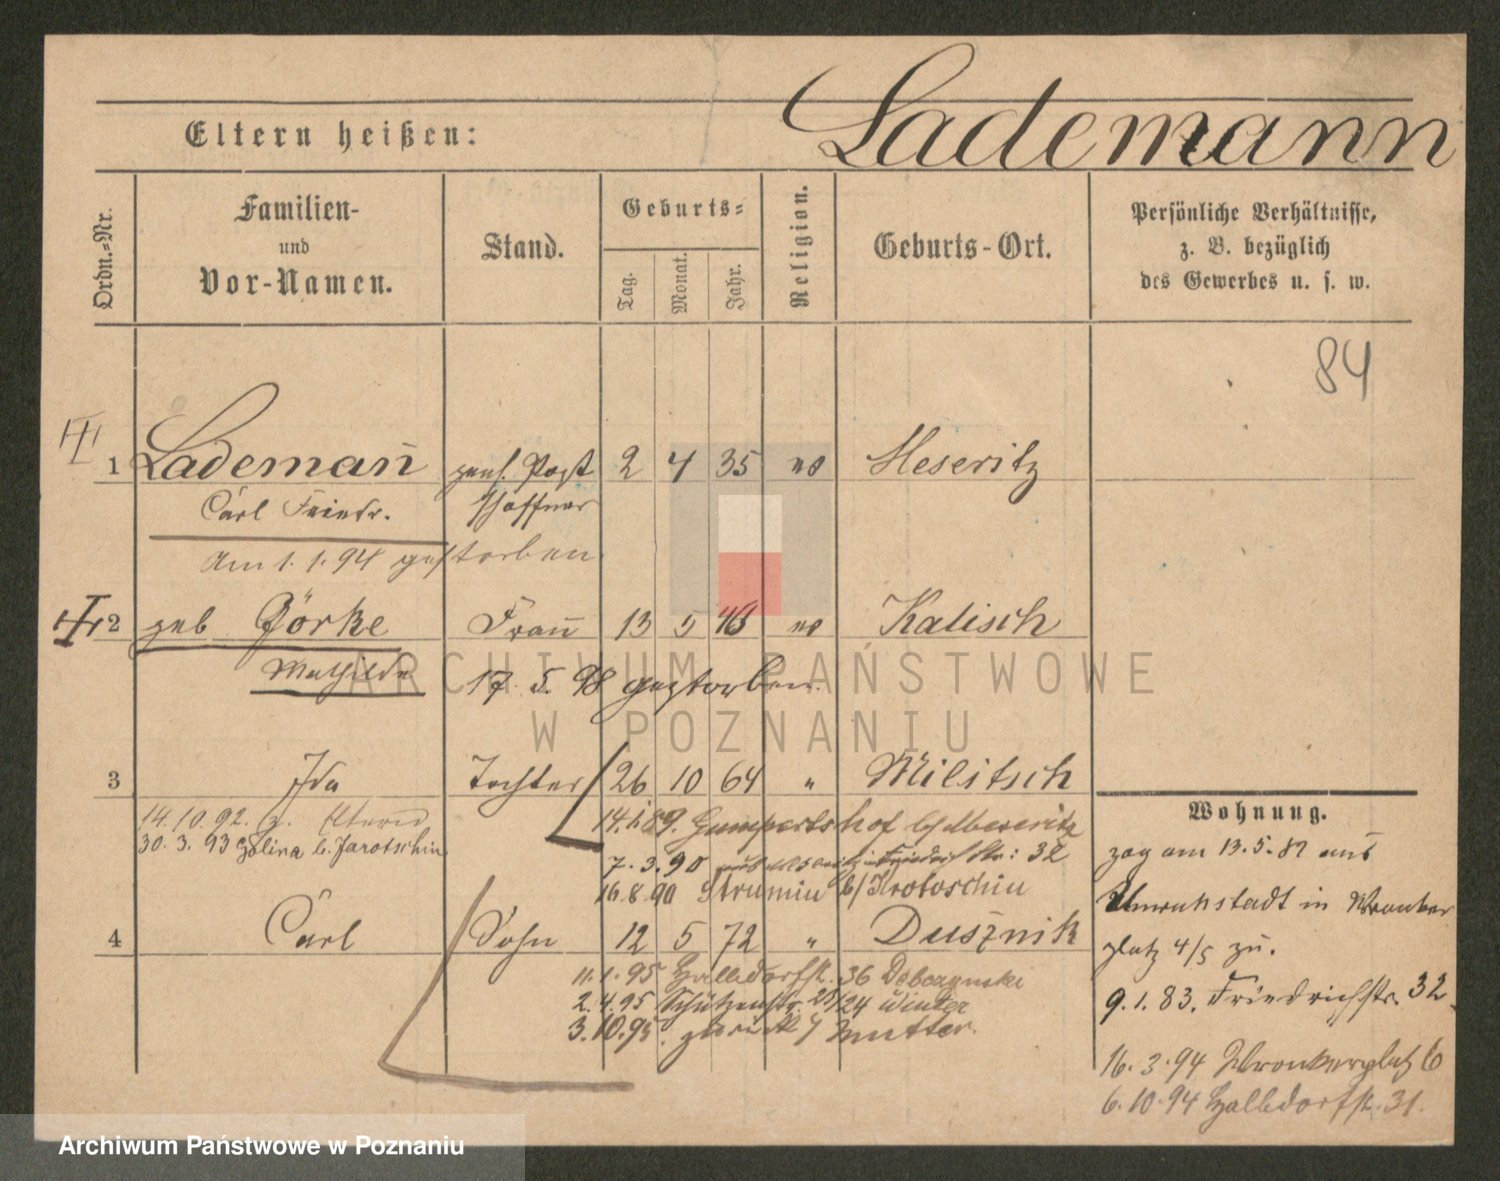 Lademann
Eltern heißen:
Ordn.-Nr.
Familien-
und
Vor-Namen.
Stand.
Geburts-
Tag.
Monat.
Jahr.
Religion.
Geburts-Ort.
Persönliche Verhältnisse,
z. B. bezüglich
des Gewerbes u. s. w.
84
III
1 Lademañ pens. Post 2 4 35 Meseritz
Carl Friedr. schaffner
Am 1.1.94 gestorben
2 geb Zörke Frau 13 5 Kalisch
Mathilde 17. 5. 98 gestorben.
3 Ida Tochter 26 10 64 " Militsch
14.10.92. z.
30. 3. 93 b. Jarotschin
Gumpertshof b/Meseritz
7.3.90 Friedrichstr: 32
16.8.90 b/Krotoschin
4 Carl Sohn 12 5 72 " Dusznik
11.1.95 Halldorfstr. 36
2.4.95 Schützenstr. Winter
3.10.95. zurück z/ Mutter.
Wohnung.
zog am 13.5.82 aus
Unruhstadt in Wronker
platz 4/5 zu.
9.1.83. Friedrichstr. 32
16.3.94 Wronkerplatz 6
6.10.94 Halldorfstr. 31.
ARCHIWUM PAŃSTWOWE
W POZNANIU
Archiwum Państwowe w Poznaniu